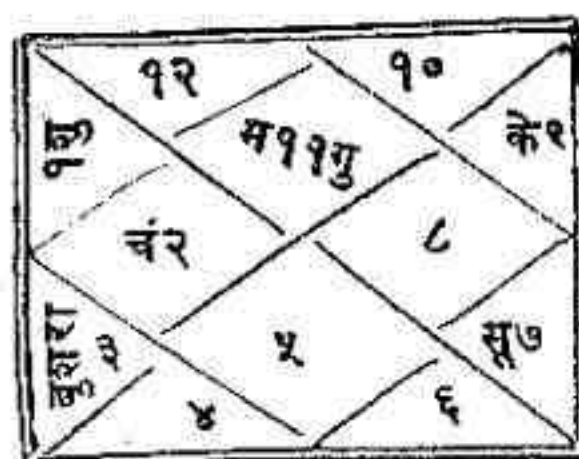 १२
१०
१शु
म११गु
के९
चं२
८
बुशरा
३
५
सू७
४
६